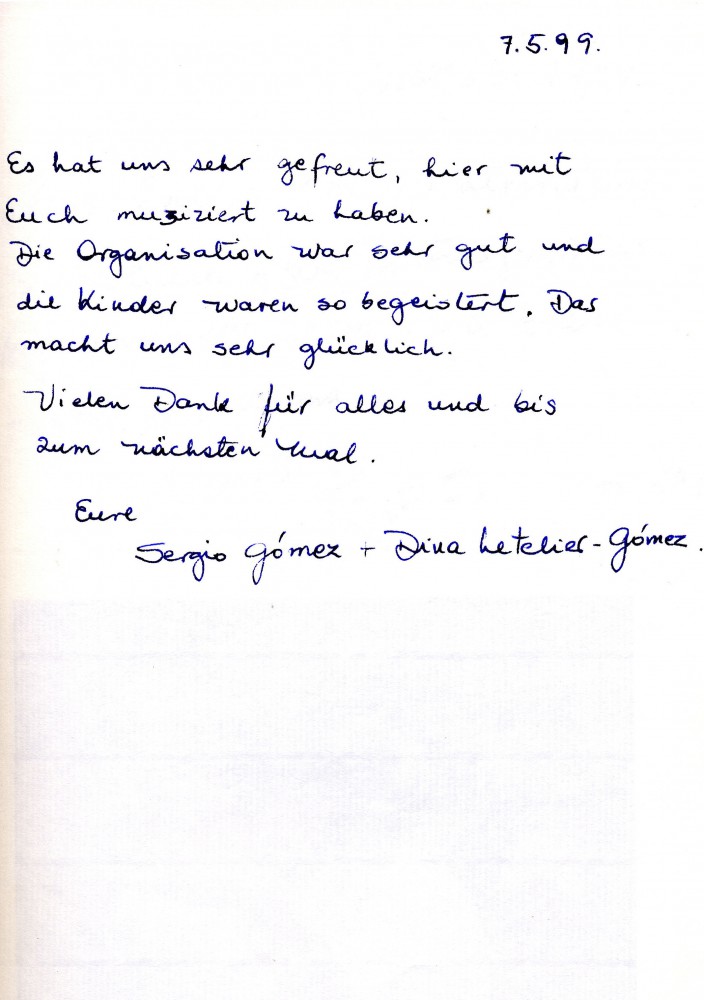 7.5.99.
Es hat uns sehr gefreut, hier mit
Euch musiziert zu haben.
Die Organisation war sehr gut und
die Kinder waren so begeistert. Das
macht uns sehr glücklich.
Vielen Dank für alles und bis
zum nächsten Mal.
Eure
Sergio Gómez + Dina Letelier-Gómez.